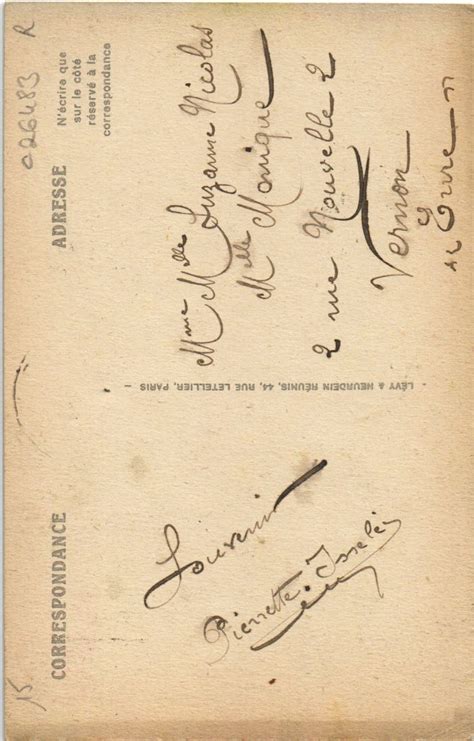 15
CORRESPONDANCE
Souvenir
Pierrette
- LÉVY & NEURDEIN RÉUNIS, 44, RUE LETELLIER, PARIS -
026483 R
ADRESSE
N'écrire que
sur le côté
réservé à la
correspondance
Mme Melle Suzanne Nicolas
Melle Monique
2 rue Nouvelle 2
Vernon
Eure